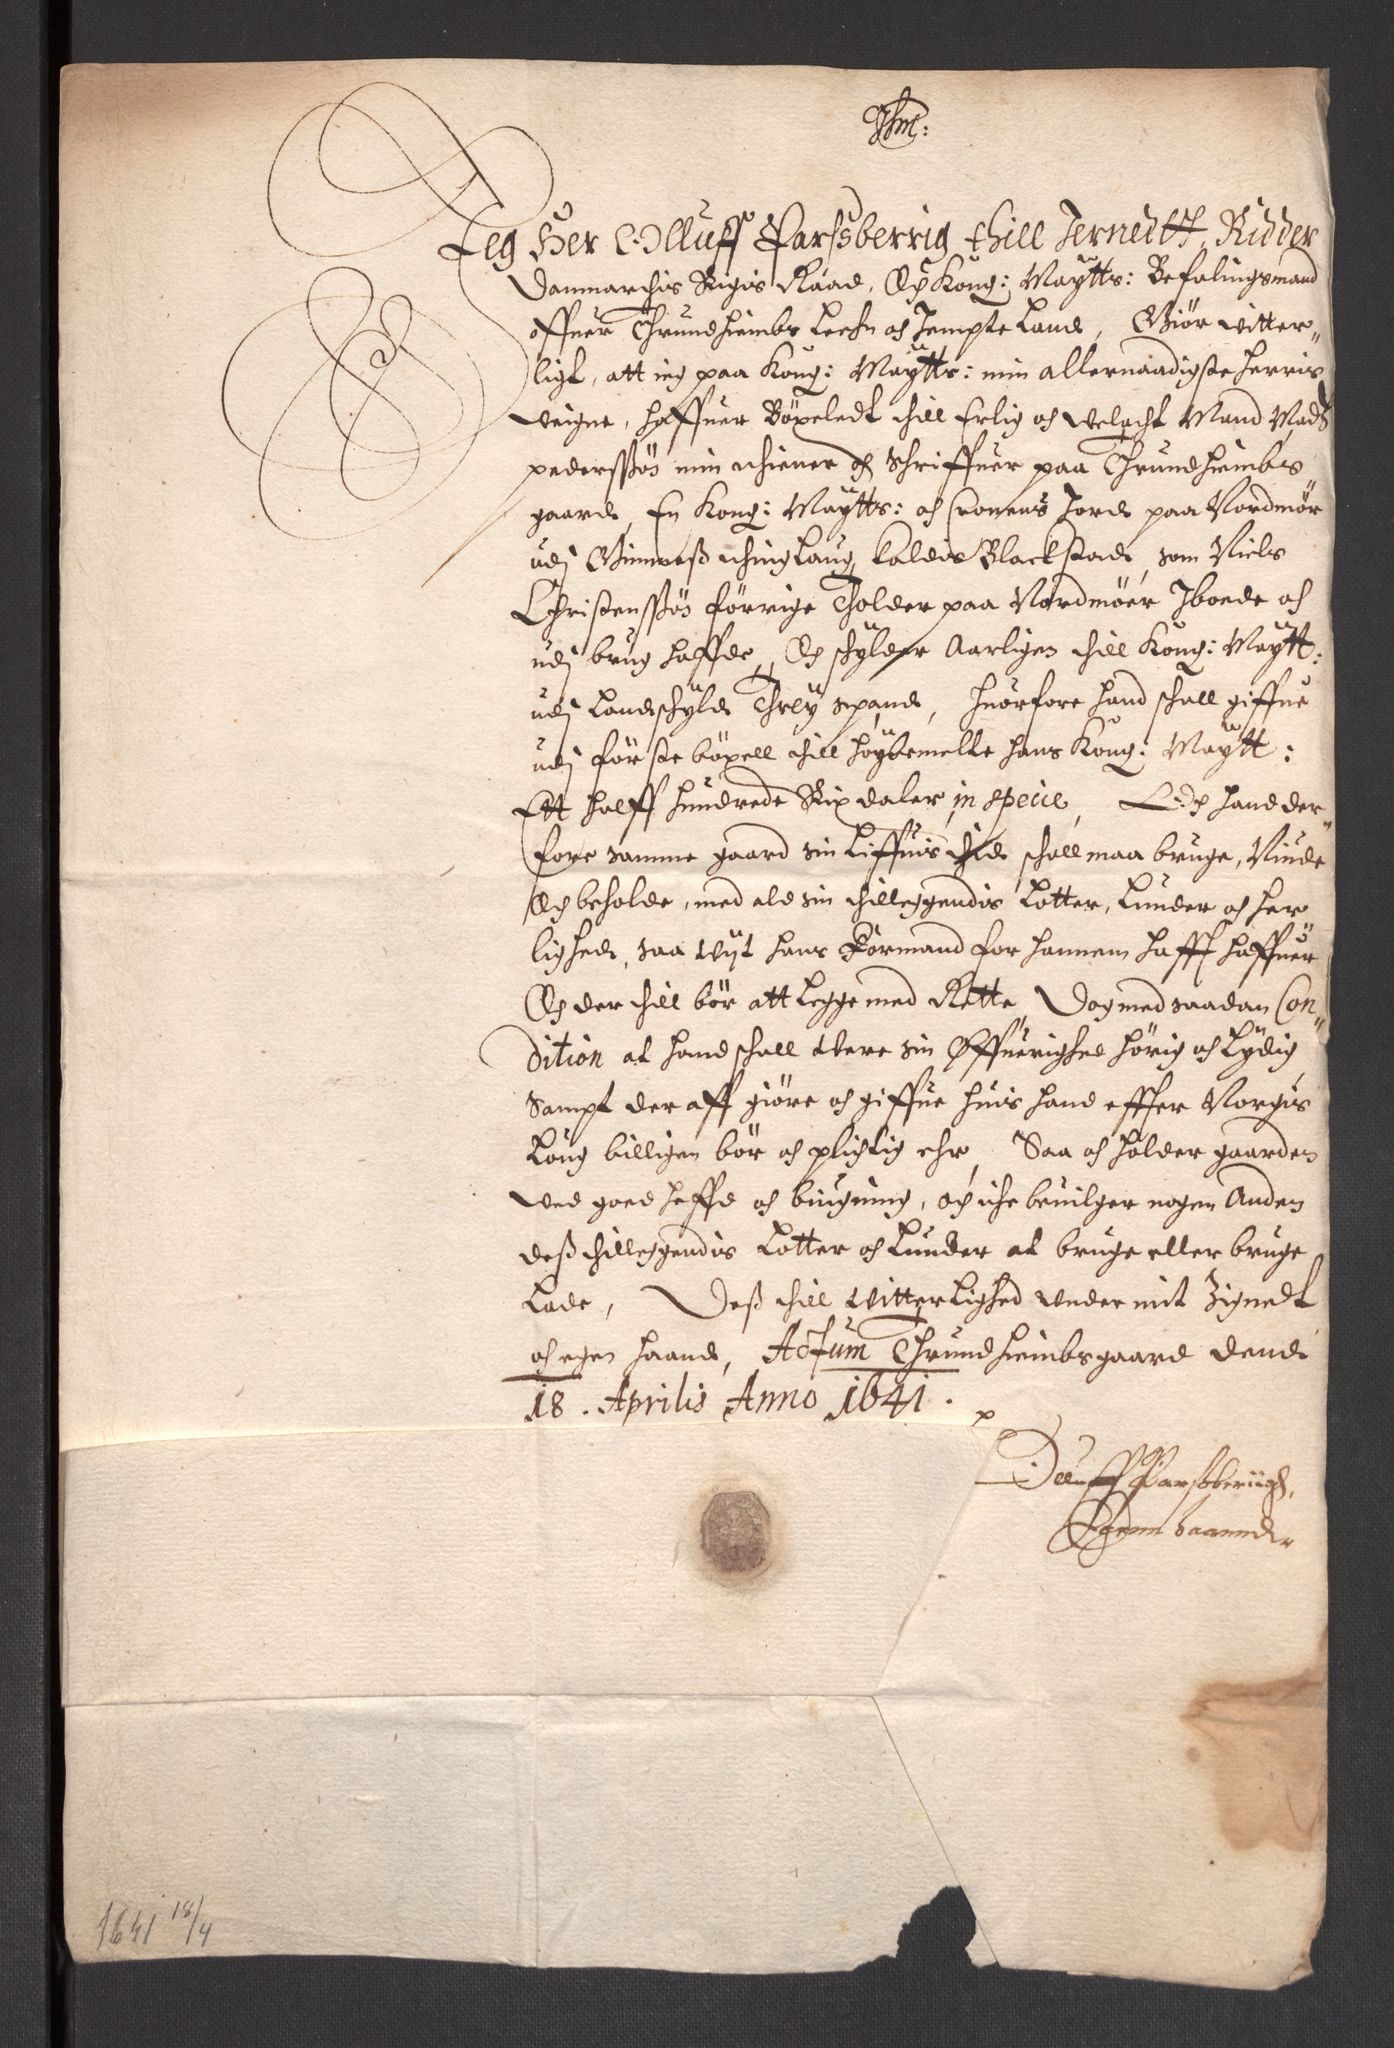 Ihm:
Jeg Her Olluff Parssberrig thill Jernedtt, Ridder
Danmarchis Rigis Raad, Och Kong: Maÿtts: Befalingsmand
offuer Thrundhiembs Leehn och Jempte Land, Giör witter„
ligt, att ieg paa Kong: Maÿtts: min allernaadigste herris
weigne, haffuer Böxeledt thill Erlig och welacht Mand Mads
pederssøn min thiener och Schriffuer paa Thrundhiembs
gaard, En Kong: Maÿtts: och Cronens Jord paa Nordmör
udj Gimneß thinglaug, kaldis Blackstad, som Niels
Christenssøn förrige Tholder paa Nordmöer Iboede och
udj brug haffde, Och schylder Aarligen thill Kong: Maÿtt:
udj Landschyld Threÿ spand, huorfore hand schall giffue
udj förste böxell thill höÿbemelte hans Kong: Maÿtt:
Ett halff hundrede Rixdaler in specie, Och hand der„
fore samme gaard sin Liffuis thid schall maa bruge, Niude
Och beholde, med ald sin thilleggendis Lotter, Lunder och her
lighed, saa wijt hans Formand for hannem hafft haffuer
Och der thill bör att Legge med Rette, Dog med saadan Con„
dition at hand schall were sin Øffuerighed hörig och Lydig
Sampt der aff giöre och giffue huis hand effter Norgis
Loug billigen bör och plichtig ehr, Saa och holder gaarden
wed goed heffd och biugning, och iche beuilger nogen Anden
deß thilleggendis Lotter och Lunder at bruge eller bruge
Lade, Deß thill witterlighed under mit Zignedt
och egen haand, Actum Thrundhiembsgaard dend
18. Aprilis Anno 1641.
Olluff Parssberiigh,
Egenn haanndt
1641 18/4